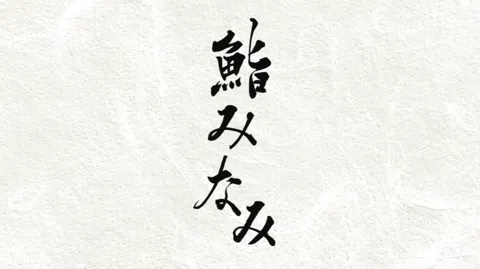 鮨みなみ